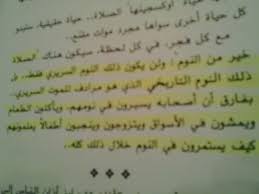 حياة أوكسجينها "الصلاة".. حياة حقيقية،
كل حياة أخرى سواها مجرد موات مقنع..
مع كل فجر، في كل لحظة، سيكون هناك "الصلاة
خير من النوم"! ولن يكون ذلك النوم السريري فقط.. بل
ذلك النوم التاريخي الذي هو مرادف للموت السريري..
بفارق أن أصحابه يسيرون في نومهم. ويأكلون الطعام
ويمشون في الأسواق ويتزوجون وينجبون أطفالاً يعلمونهم
كيف يستمرون في النوم خلال ذلك كله..